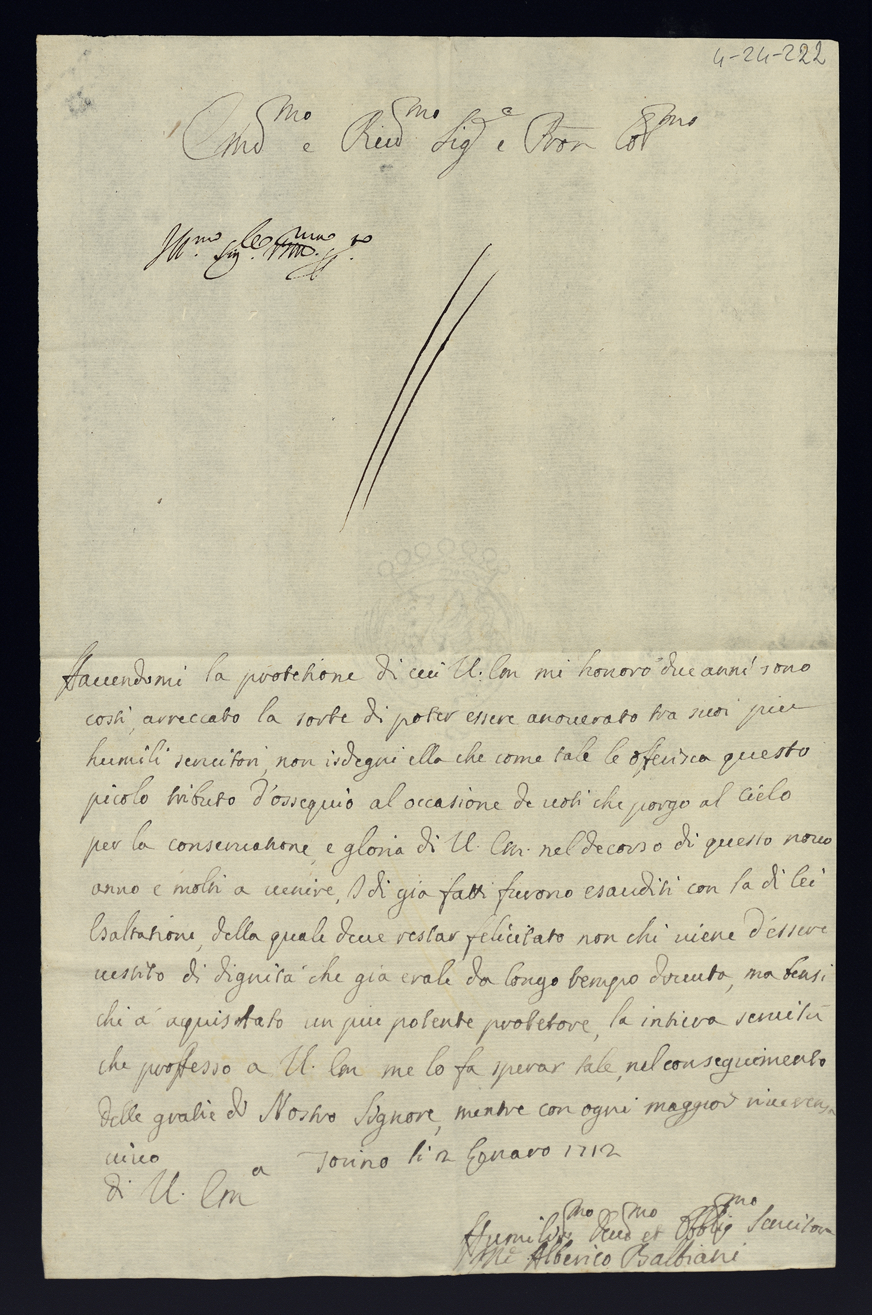 4-24-222
Em̃o e Reu̅mo Sig.e e Pron Col̅mo
Havendomi la protetione di cui V. Em mi honorò due anni sono
costì, arreccato la sorte di poter essere anoverato tra suoi più
humili servitori, non isdegni ella che come tale le oferisca questo
picolo tributo d'ossequio al occasione de voti che porgo al Cielo
per la conservatione, e gloria di V. Em. nel decorso di questo novo
anno e molti a venire, di già fatti furono esauditi con la di lei
Esaltatione, della quale deve restar felicitato non chi viene d'essere
vestito di dignità che già erale da longo tempo dovuta, ma bensi
chi à aquistato un più potente protetore, la intiera servitù
che proffesso a V. Em me lo fa sperar tale, nel conseguimento
delle gratie di Nostro Signore, mentre con ogni maggior riverenza
vivo
di V. Em.a Torino li 2 Genaro 1712
Humiliss.mo Deu.mo et Obblig.mo Servitore
Alberico Balbiani